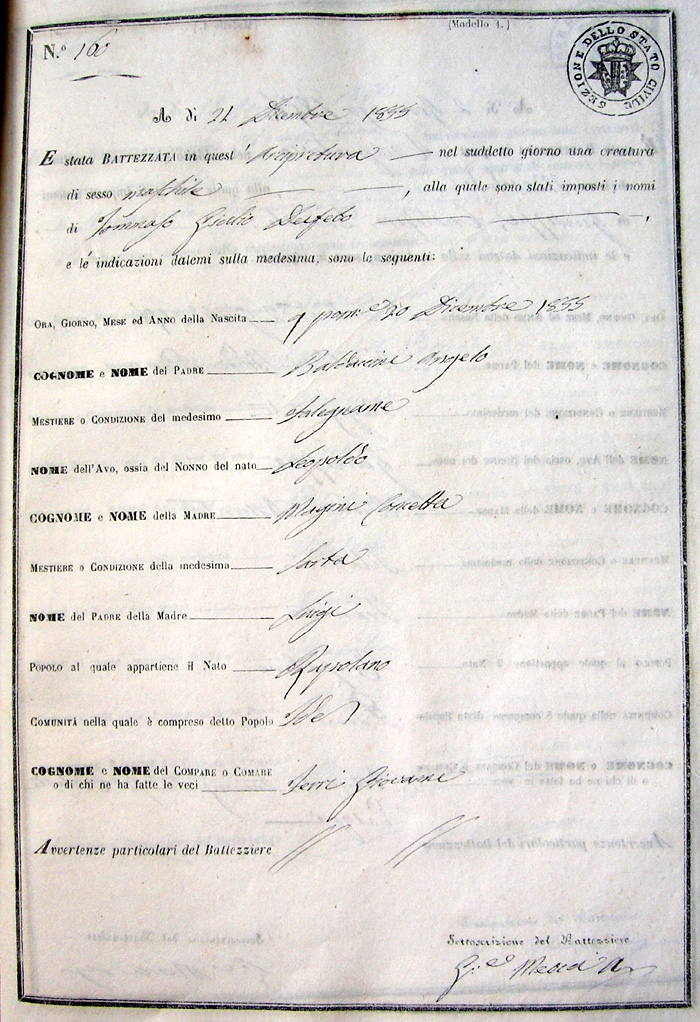 (Modello 1.)
N.º 160
SEZIONE DELLO STATO CIVILE
A dì 21 Dicembre 1855
E stata BATTEZZATA in quest' Arcipretura nel suddetto giorno una creatura
di sesso maschile, alla quale sono stati imposti i nomi
di Tommaso Giulio,
e le indicazioni datemi sulla medesima, sono le seguenti:
ORA, GIORNO, MESE ed ANNO della NASCITA 9 pom.e 20 Dicembre 1855
COGNOME e NOME del PADRE Baldaccini Angelo
MESTIERE o CONDIZIONE del medesimo Falegname
NOME dell'Avo, ossia del NONNO del nato Leopoldo
COGNOME e NOME della MADRE Magini Concetta
MESTIERE o CONDIZIONE della medesima Sarta
NOME del PADRE della Madre Luigi
POPOLO al quale appartiene il Nato Rapolano
COMUNITÀ nella quale è compreso detto Popolo Id.
COGNOME e NOME del COMPARE o COMARE
o di chi ne ha fatte le veci Terri Giovanni
Avvertenze particolari del Battezziere // //
Sottoscrizione del Battezziere